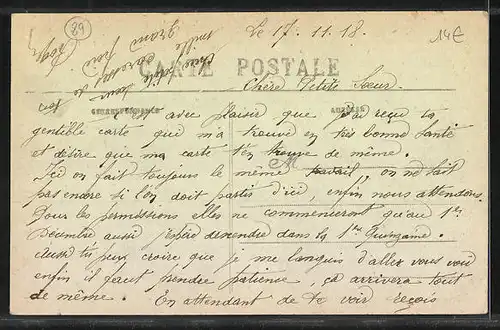 89
Le 17.11.18.
14€
CARTE POSTALE
Chère Petite Sœur.
CORRESPONDANCE
C'est avec plaisir que j'ai reçu ta
gentille carte qui m'a trouvé en très bonne santé
et désire que ma carte t'en trouve de même.
Ici on fait toujours le même travail, on ne sait
pas encore si l'on doit partir d'ici, enfin nous attendons.
Pour les permissions elles ne commenceront qu'au 1er
Décembre aussi j'espère descendre dans la 1ère Quinzaine.
Aussi tu peux croire que je me languis d'allez vous voir
enfin il faut prendre patience, ça arrivera tout
de même. En attendant de te voir reçois
chère petite sœur
mille caresses de ton
grand frère